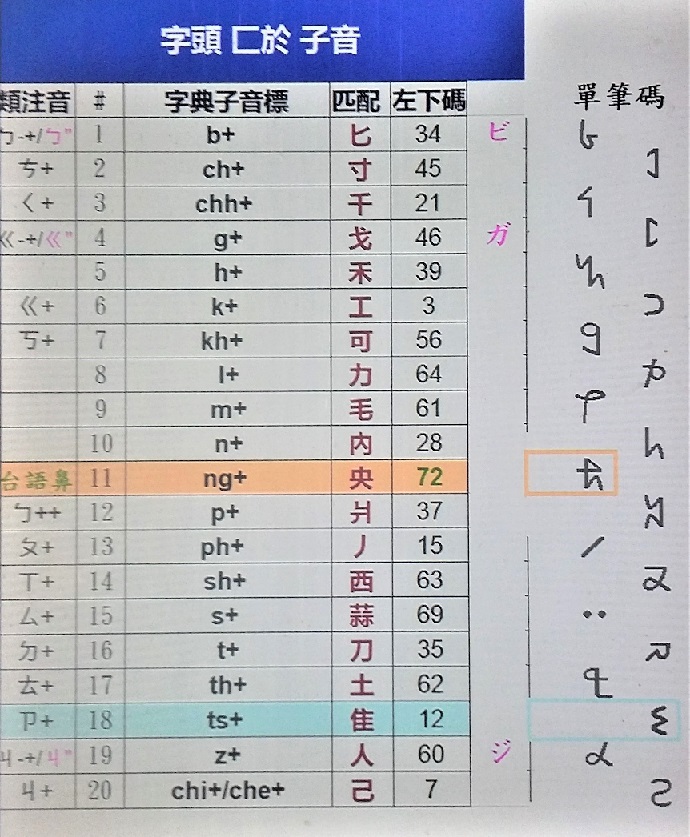 字頭 匚於 子音
類注音 # 字典子音標 匹配 左下碼 單筆碼
ㄅ-+/ㄅ" 1 b+ 匕 34 ビ
ㄘ+ 2 ch+ 寸 45
ㄑ+ 3 chh+ 千 21
ㄍ-+/ㄍ" 4 g+ 戈 46 ガ
5 h+ 禾 39
ㄍ+ 6 k+ 工 3
ㄎ+ 7 kh+ 可 56
8 l+ 力 64
9 m+ 毛 61
10 n+ 內 28
台語鼻 11 ng+ 央 72
ㄅ++ 12 p+ 爿 37
ㄆ+ 13 ph+ 丿 15
ㄒ+ 14 sh+ 西 63
ㄙ+ 15 s+ 蒜 69
ㄉ+ 16 t+ 刀 35
ㄊ+ 17 th+ 土 62
ㄗ+ 18 ts+ 隹 12
ㄐ-+/ㄐ" 19 z+ 人 60 ジ
ㄐ+ 20 chi+/che+ 己 7